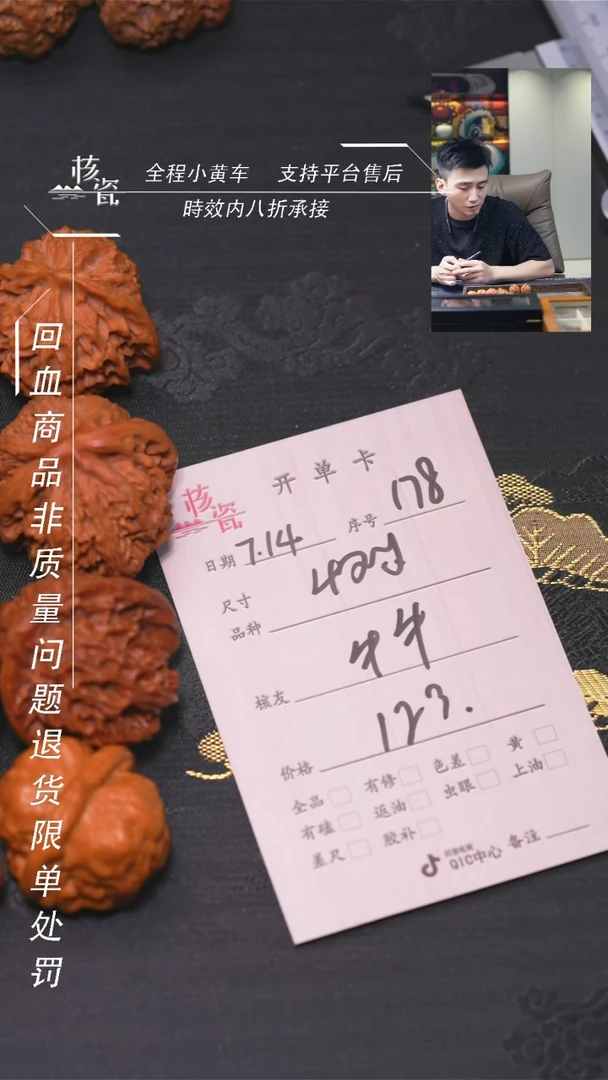 核瓷
全程小黄车 支持平台售后
時效内八折承接
回血商品非质量问题退货限单处罚
核瓷
开单卡
日期 7.14 序号 178
尺寸
品种
核友 44
价格 123.
全品 有修 色差 黄
有磕 返油 虫眼 上油
差尺 胶补
抖音电商
QIC中心 备注